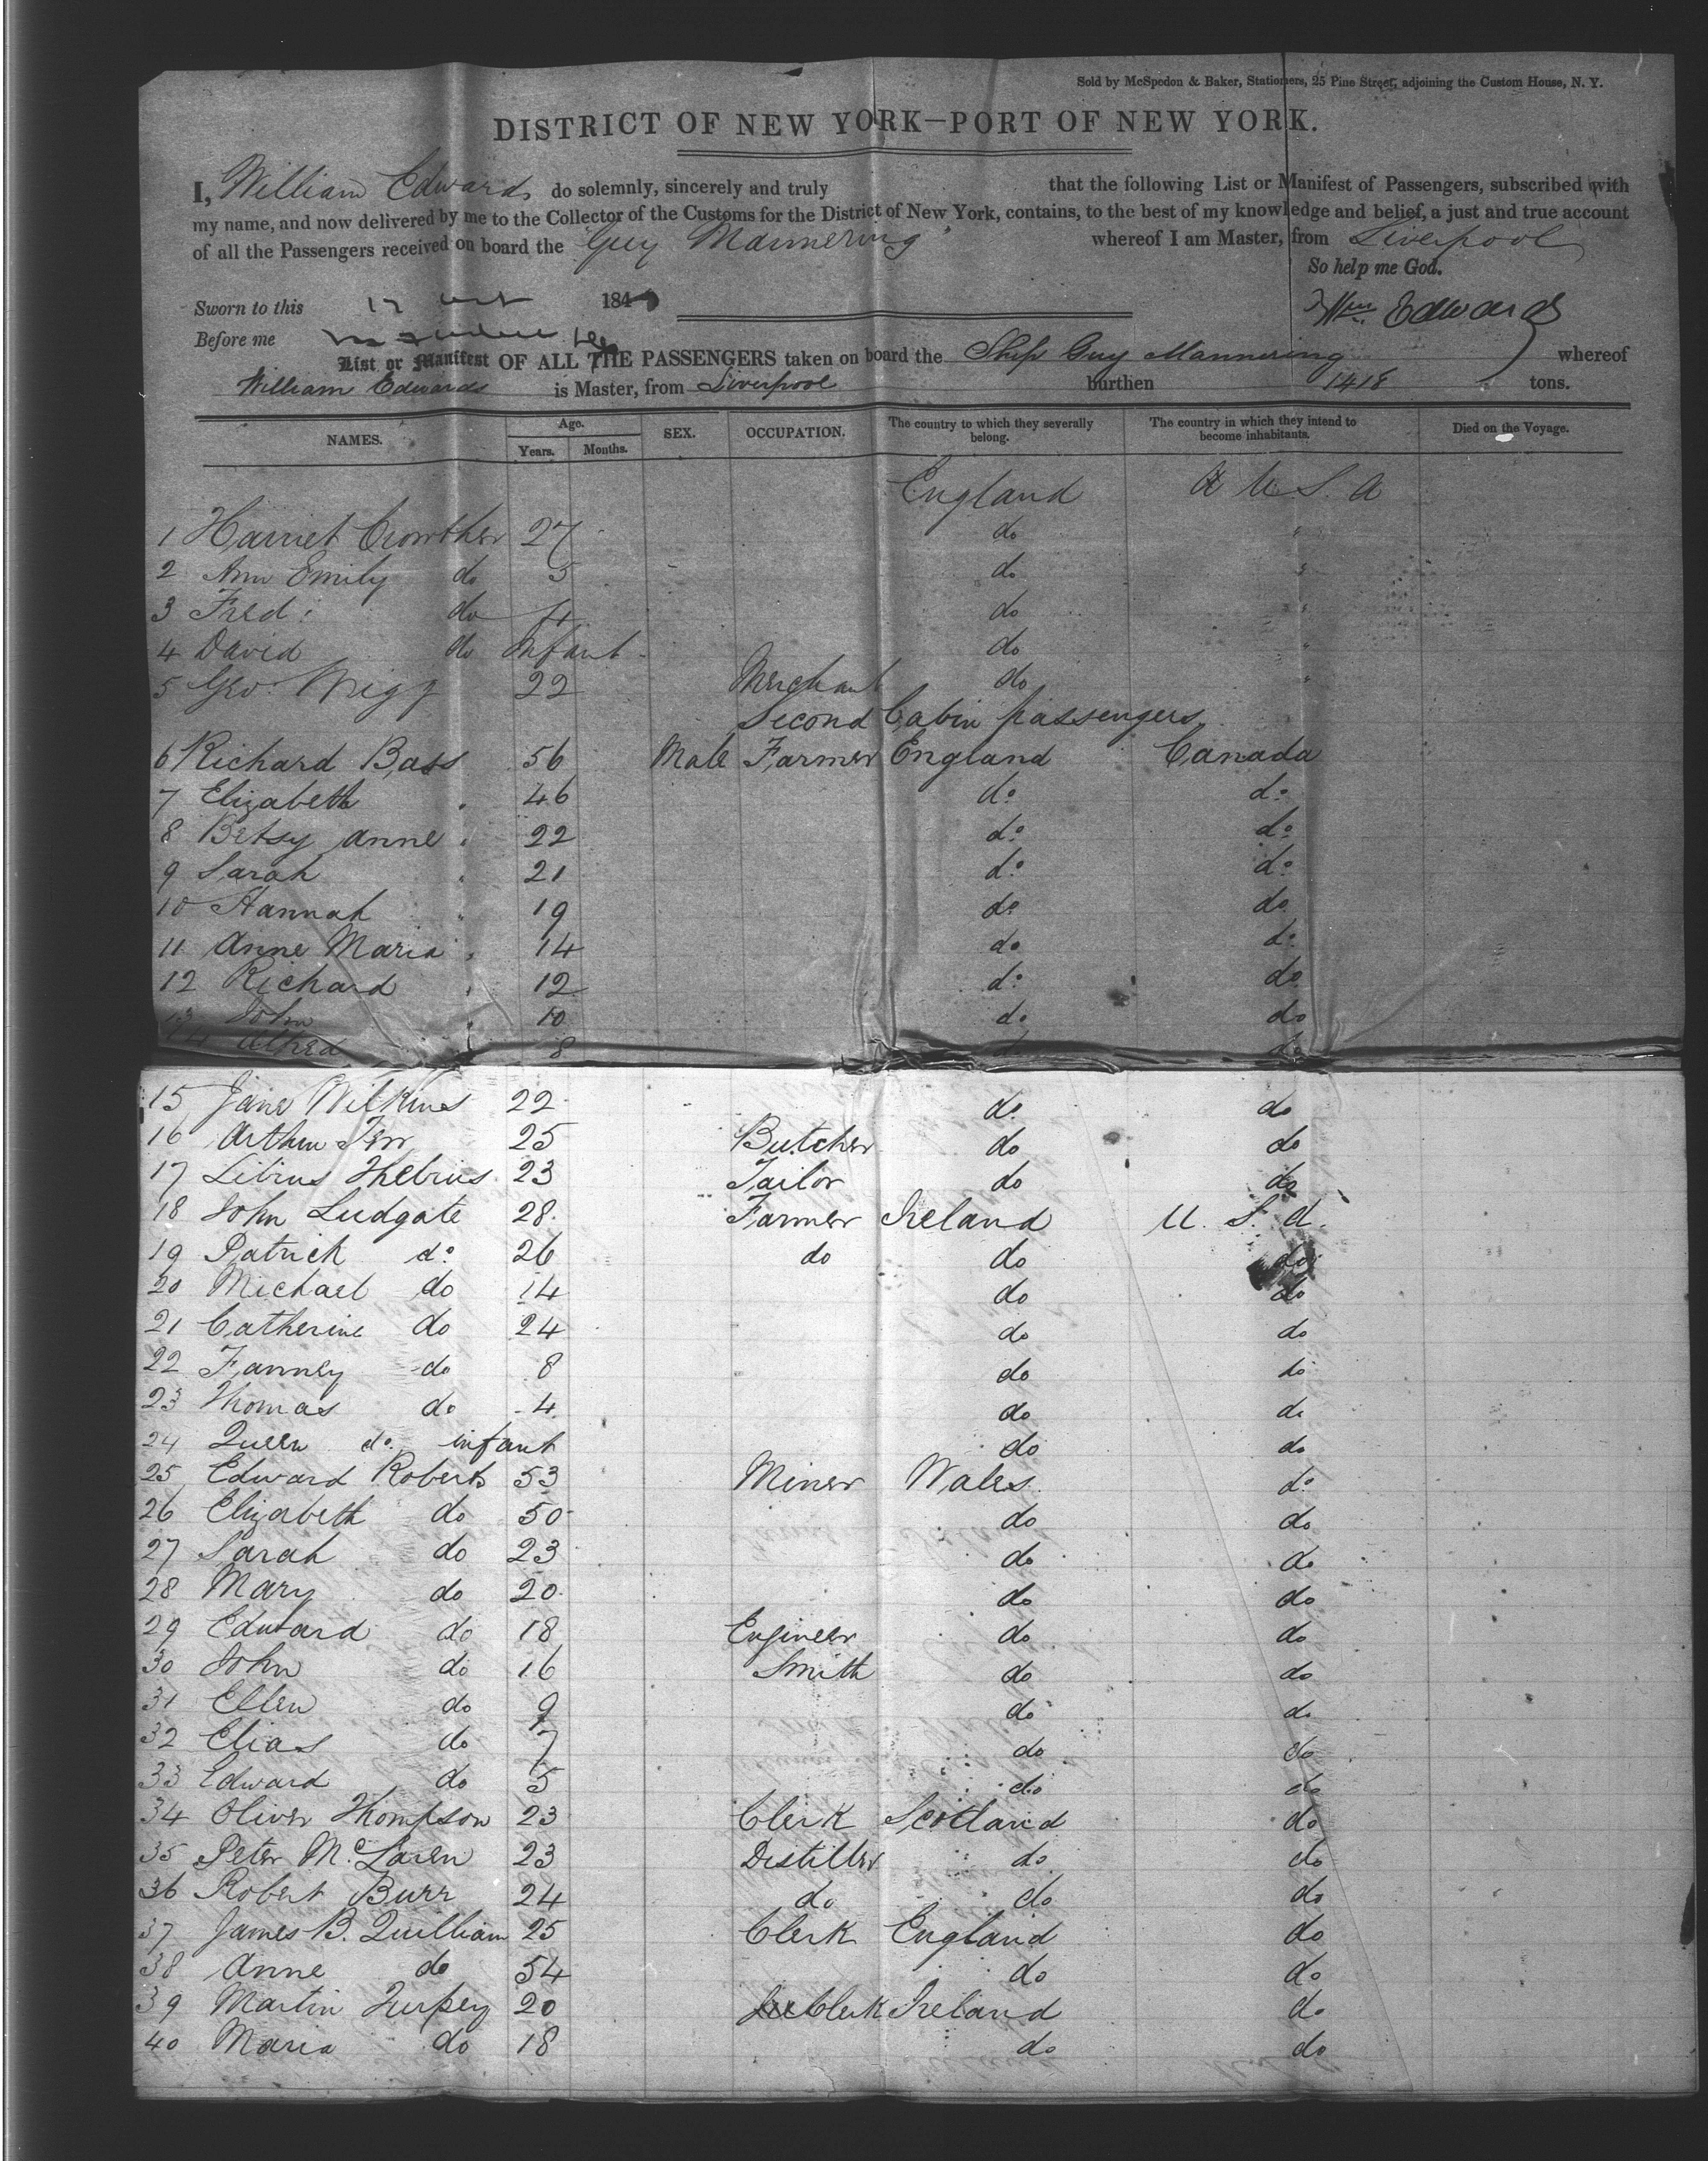 Sold by McSpedon & Baker, Stationers, 25 Pine Street, adjoining the Custom House, N. Y.
DISTRICT OF NEW YORK—PORT OF NEW YORK.
I, William Edwards do solemnly, sincerely and truly that the following List or Manifest of Passengers, subscribed with
my name, and now delivered by me to the Collector of the Customs for the District of New York, contains, to the best of my knowledge and belief, a just and true account
of all the Passengers received on board the "Guy Mannering" whereof I am Master, from Liverpool
So help me God.
Sworn to this 184
Wm Edwards
Before me
List or Manifest OF ALL THE PASSENGERS taken on board the Ship Guy Mannering whereof
William Edwards is Master, from Liverpool burthen 1418 tons.
NAMES. Age. Years. Months. SEX. OCCUPATION. The country to which they severally belong. The country in which they intend to become inhabitants. Died on the Voyage.
England U S. A
1 Harriet Crowther 27 do "
2 Ann Emily do 5 do "
3 Fred: do 4 do "
4 David do Infant do "
5 Geo. Wigg 22 Merchant do "
Second Cabin passengers
6 Richard Bass 56 Male Farmer England Canada
7 Elizabeth " 46 do do
8 Betsy Anne " 22 do do
9 Sarah " 21 do do
10 Hannah " 19 do do
11 Anne Maria " 14 do do
12 Richard " 12 do do
13 John " 10 do do
14 Alfred 8 do do
15 Jane Wilkins 22 do do
16 Arthur 25 Butcher do do
17 23 Tailor do do
18 John Ludgate 28 Farmer Ireland U. S. A.
19 Patrick do 26 do do do
20 Michael do 14 do do
21 Catherine do 24 do do
22 Fanney do 8 do do
23 Thomas do 4 do do
24 Queen do infant do do
25 Edward Roberts 53 Miner Wales do
26 Elizabeth do 50 do do
27 Sarah do 23 do do
28 Mary do 20 do do
29 Edward do 18 Engineer do do
30 John do 16 Smith do do
31 Ellen do 9 do do
32 Elias do 7 do do
33 Edward do 5 do do
34 Oliver Thompson 23 Clerk Scotland do
35 Peter McLaren 23 Distiller do do
36 Robert Burr 24 do do do
37 James B. Quilliam 25 Clerk England do
38 Anne do 54 do do
39 Martin Turpey 20 Clerk Ireland do
40 Maria do 18 do do